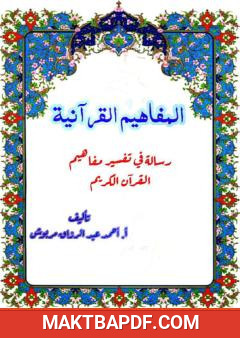 المفاهيم القرآنية
رسالة في تفسير مفاهيم
القرآن الكريم
تأليف
أ. أحمد عبد الرزاق
MAKTBAPDF.COM